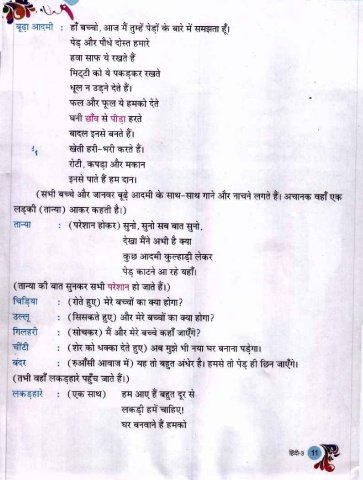 बूढ़ा आदमी : हाँ बच्चो, आज मैं तुम्हें पेड़ों के बारे में समझता हूँ।
पेड़ और पौधे दोस्त हमारे
हवा साफ ये रखते हैं
मिट्टी को ये पकड़कर रखते
धूल न उड़ने देते हैं।
फल और फूल ये हमको देते
घनी छाँव से पीड़ा हरते
बादल इनसे बनते हैं।
खेती हरी-भरी करते हैं।
रोटी, कपड़ा और मकान
इनसे पाते हैं हम दान।
(सभी बच्चे और जानवर बूढ़े आदमी के साथ-साथ गाने और नाचने लगते हैं। अचानक वहाँ एक
लड़की (तान्या) आकर कहती है।)
तान्या : (परेशान होकर) सुनो, सुनो सब बात सुनो,
देखा मैंने अभी है क्या
कुछ आदमी कुल्हाड़ी लेकर
पेड़ काटने आ रहे यहाँ।
(तान्या की बात सुनकर सभी परेशान हो जाते हैं।)
चिड़िया : (रोते हुए) मेरे बच्चों का क्या होगा?
उल्लू : (सिसकते हुए) और मेरे बच्चों का क्या होगा?
गिलहरी : (सोचकर) मैं और मेरे बच्चे कहाँ जाएँगे?
चींटी : (शेर को धक्का देते हुए) अब मुझे भी नया घर बनाना पड़ेगा।
बंदर : (रुआँसी आवाज में) यह तो बहुत अंधेर है। हमसे तो पेड़ ही छिन जाएँगे।
(तभी वहाँ लकड़हारे पहुँच जाते हैं।)
लकड़हारे : (एक साथ) हम आए हैं बहुत दूर से
लकड़ी हमें चाहिए!
घर बनवाने हैं हमको
हिंदी-3 11